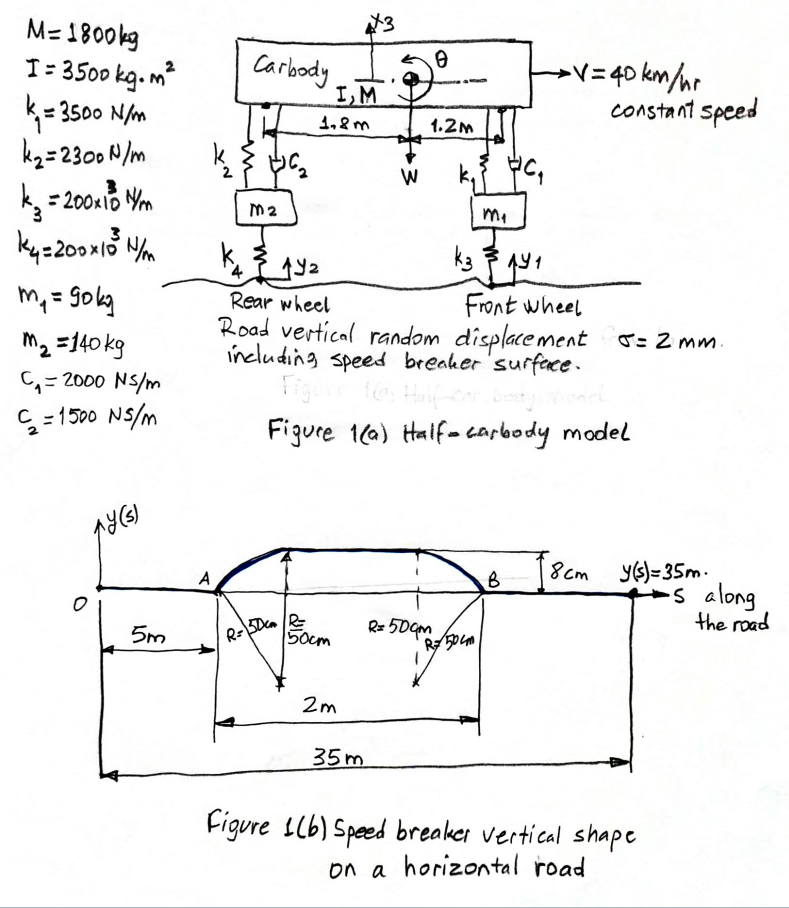 M=1800kg
I=3500kg.m²
k₁=3500 N/m
k₂=2300 N/m
k₃=200×10³ N/m
k₄=200×10³ N/m
m₁=90kg
m₂=140kg
C₁=2000 NS/m
C₂=1500 NS/m
x₃
Carbody
θ
I,M
V=40km/hr
constant speed
1.8m
1.2m
k₂
C₂
W
k₁
C₁
m₂
m₁
k₄
y₂
k₃
y₁
Rear wheel
Front wheel
Road vertical random displacement σ=2 mm.
including speed breaker surface.
Figure 1(a) Half-carbody model
y(s)
A
B
8cm
y(s)=35m.
O
S along
the road
5m
R=50cm
R=
50cm
R=50cm
R=50cm
2m
35m
Figure 1(b) Speed breaker vertical shape
on a horizontal road